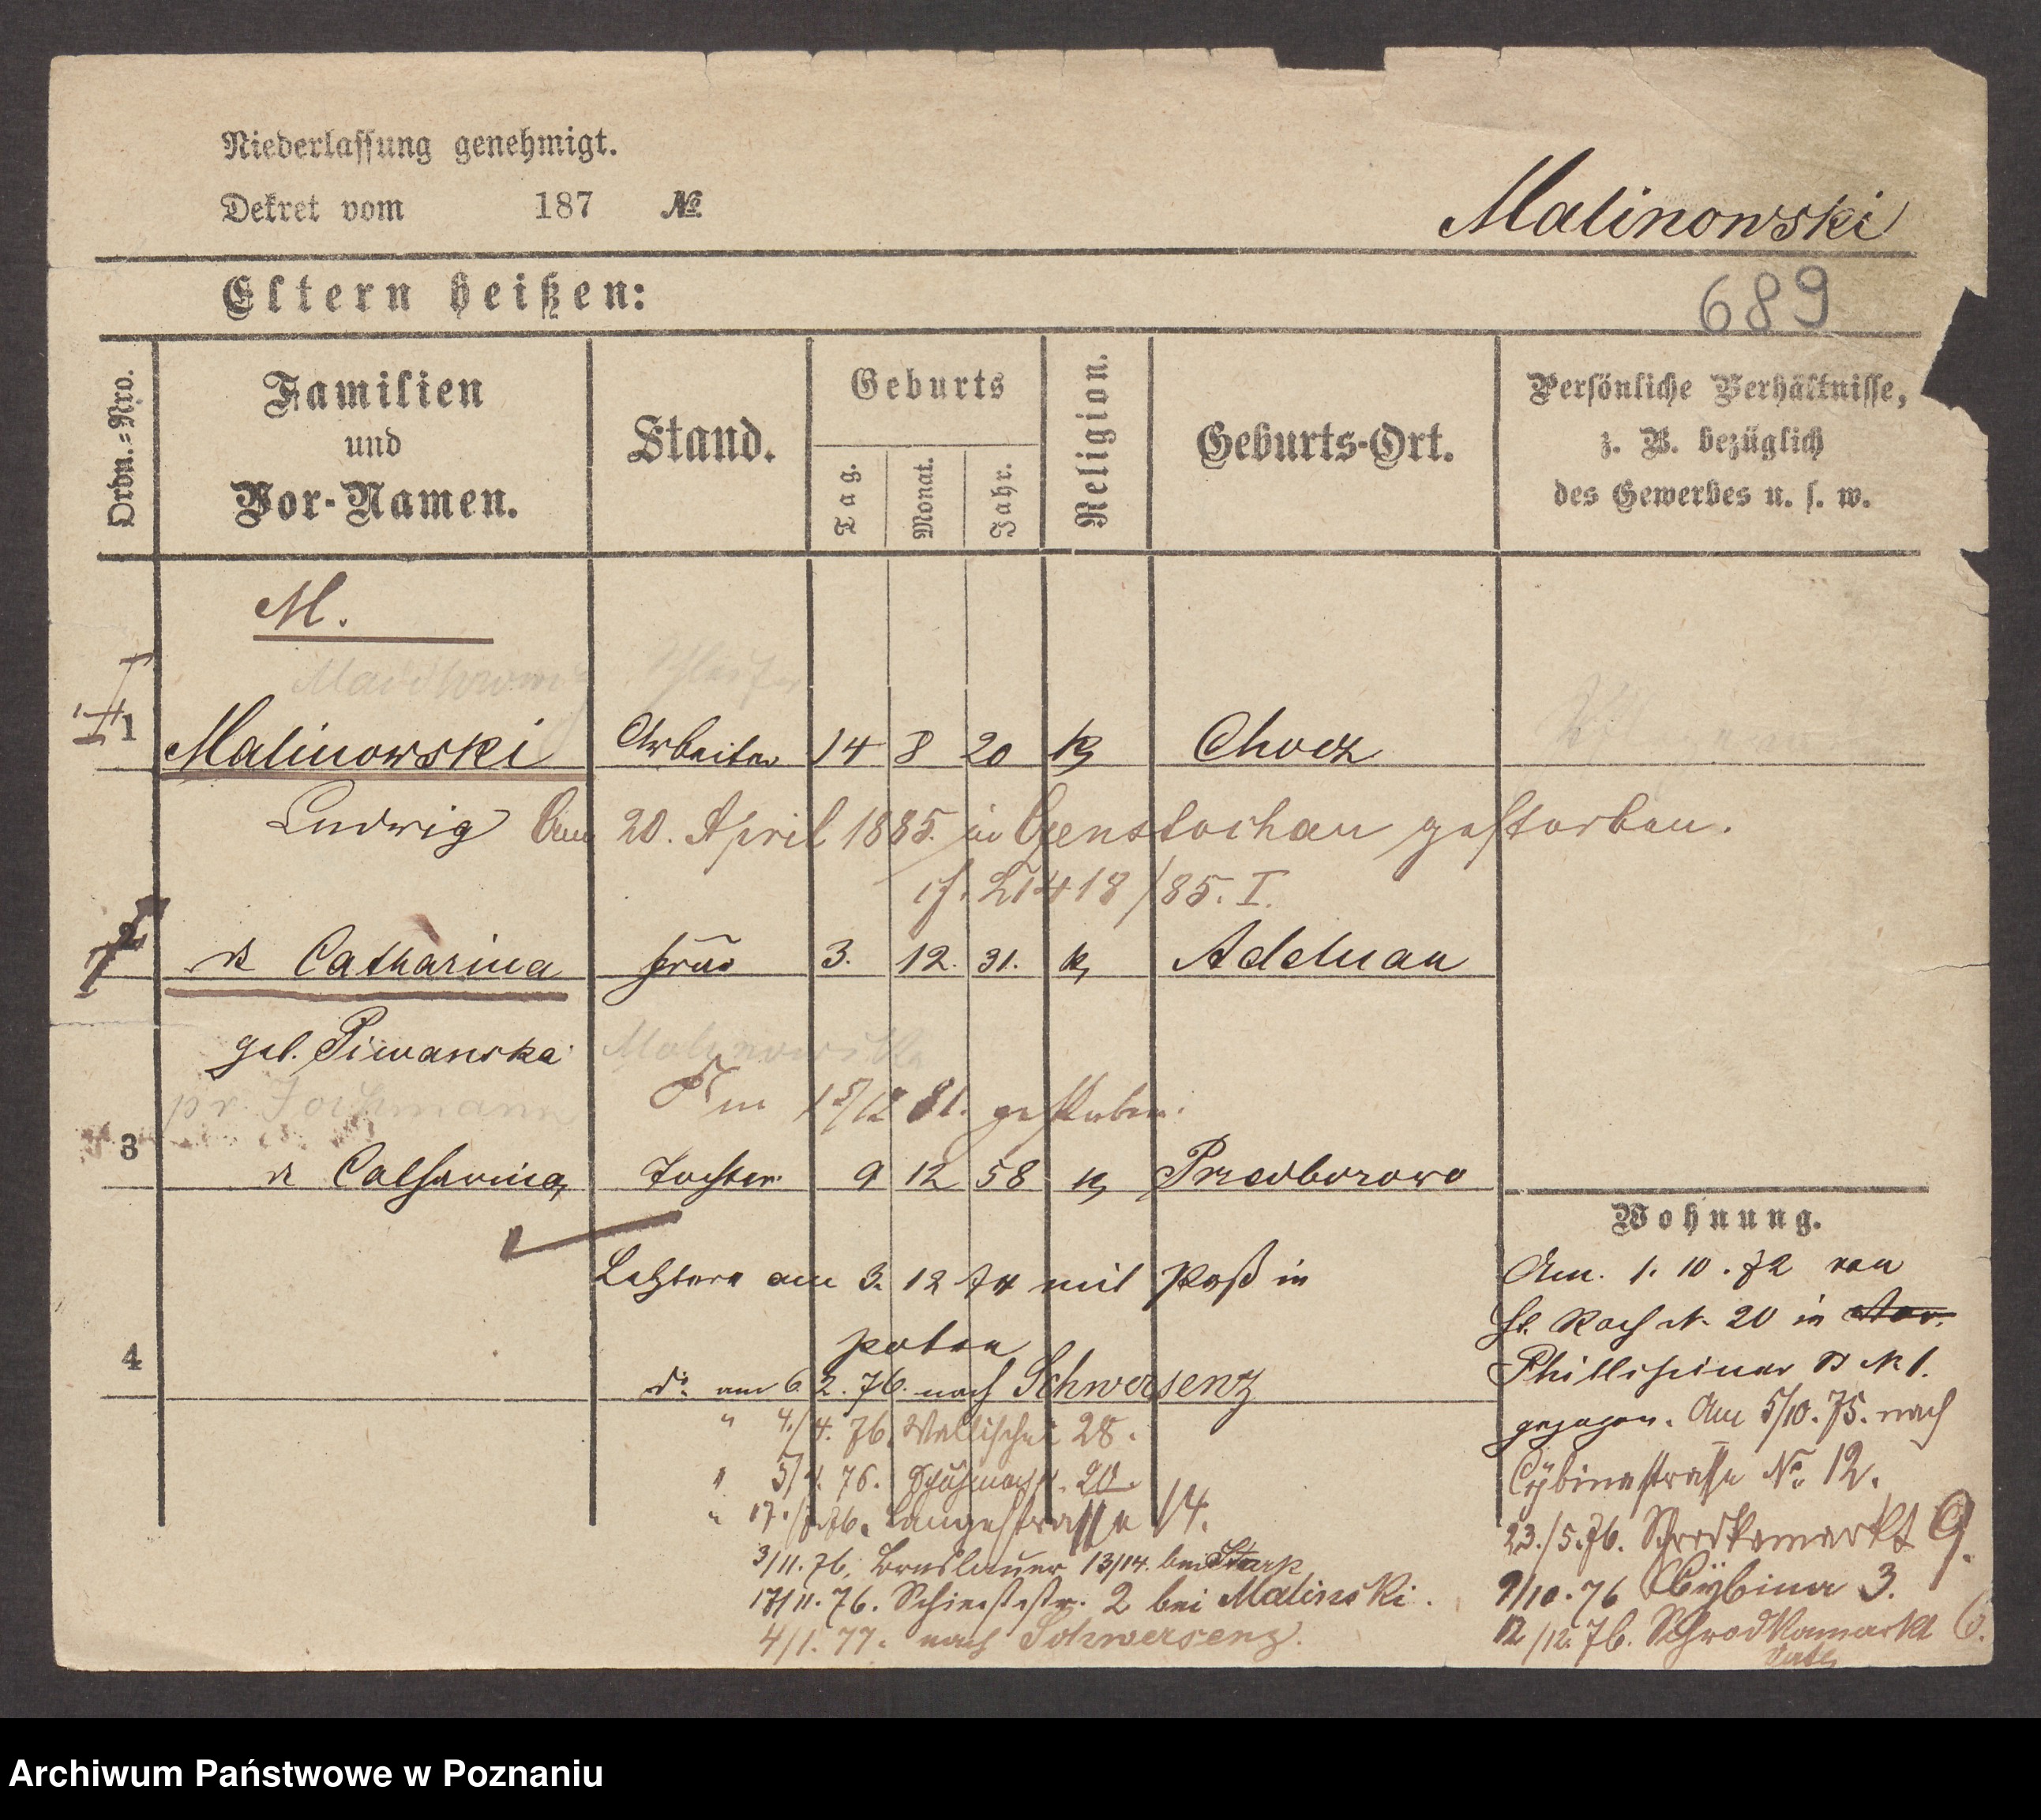 Niederlassung genehmigt.
Dekret vom 187 №
Malinowski
Eltern heißen:
689
Ordn.=Nro.
Familien
und
Vor-Namen.
Stand.
Geburts
Tag.
Monat.
Jahr.
Religion.
Geburts-Ort.
Persönliche Verhältnisse,
z. B. bezüglich
des Gewerbes u. s. w.
M.
1 Malinowski Arbeiter 14 8 20 k Chocz
Ludwig Am 20. April 1885. in Czenstochau gestorben.
cf. 21418/85. I.
2 Catharina Frau 3. 12. 31. k Adelnau
geb. Piwanska
Malinowska
pr. Jochmann
Am 15/12 81. gestorben.
3 Catharina Tochter 9 12 58 k Przedborowo
Letztere am 3. 12 74 mit Paß in
Polen
4
do. am 6. 2. 76. nach Schwersenz
" 4./4. 76. Wallischei 28.
" 5/ . 76. 20.
" 17./ 76. Langestrasse 14.
3/11. 76. Breslauer 13/14. bei Stark
17/11. 76. Schiesstr. 2 bei Malinski.
4/1. 77. nach Schwersenz.
Wohnung.
Am. 1. 10. 72 von
St. Roch N. 20 in
Phillipiner N 1.
gezogen. Am 5/10. 75. nach
Cybinastrasse No. 12.
23./5. 76. Schrodkamarkt 9.
9/10. 76 Cybina 3.
12/12. 76. Schrodkamarkt 6.
Archiwum Państwowe w Poznaniu